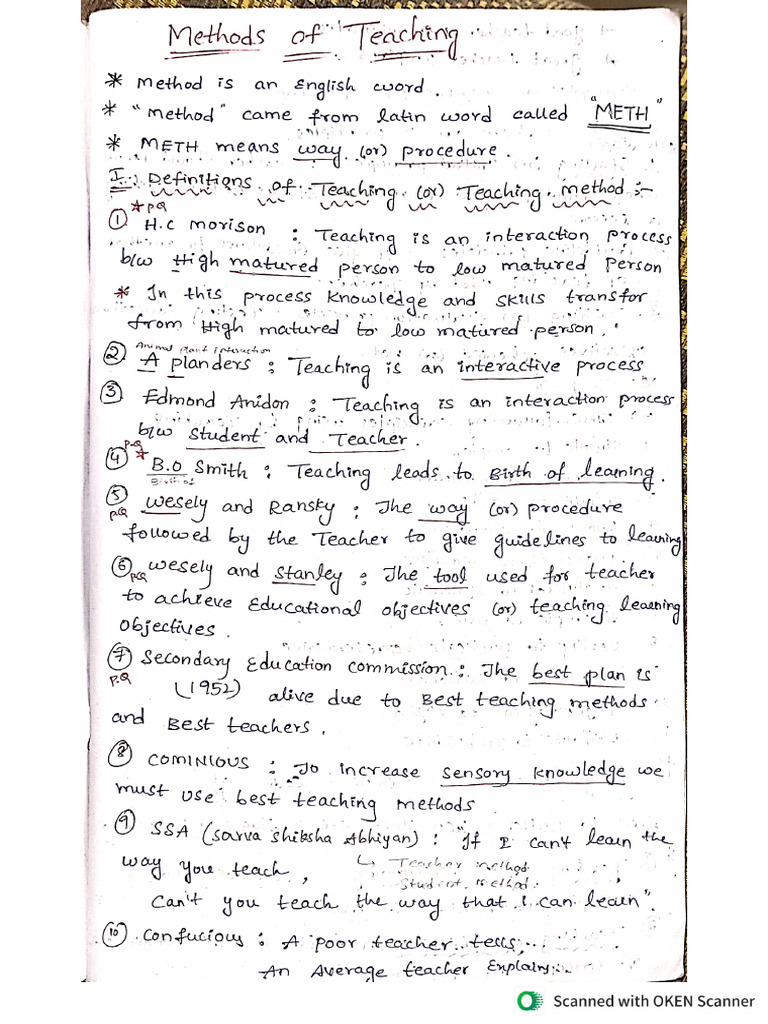 Methods of Teaching
* Method is an English word.
* "method" came from latin word called "METH"
* METH means way (or) procedure.
I. Definitions of Teaching (or) Teaching method :-
* PQ
① H.C morison : Teaching is an interaction process
b/w High matured person to low matured Person
* In this process knowledge and skills transfor
from High matured to low matured person.
Animal plant interaction
② A planders : Teaching is an interactive process
③ Edmond Anidon : Teaching is an interaction process
b/w Student and Teacher.
P.Q *
④ B.O Smith : Teaching leads to Birth of learning.
Birth of
⑤ Wesely and Ransky : The way (or) procedure
PQ followed by the Teacher to give guidelines to learning
⑥ PQ Wesely and Stanley : The tool used for teacher
to achieve Educational objectives (or) teaching learning
objectives.
⑦ Secondary Education commission : The best plan is
P.Q (1952) alive due to Best teaching methods
and Best teachers.
⑧ COMINIOUS : To increase sensory knowledge we
must use best teaching methods
⑨ SSA (sarva shiksha Abhiyan) : "If I can't learn the
way you teach, ↳ Teacher method
Student method.
Can't you teach the way that I can learn".
⑩ Confucious : A poor teacher tells..
An Average teacher Explains..
Scanned with OKEN Scanner